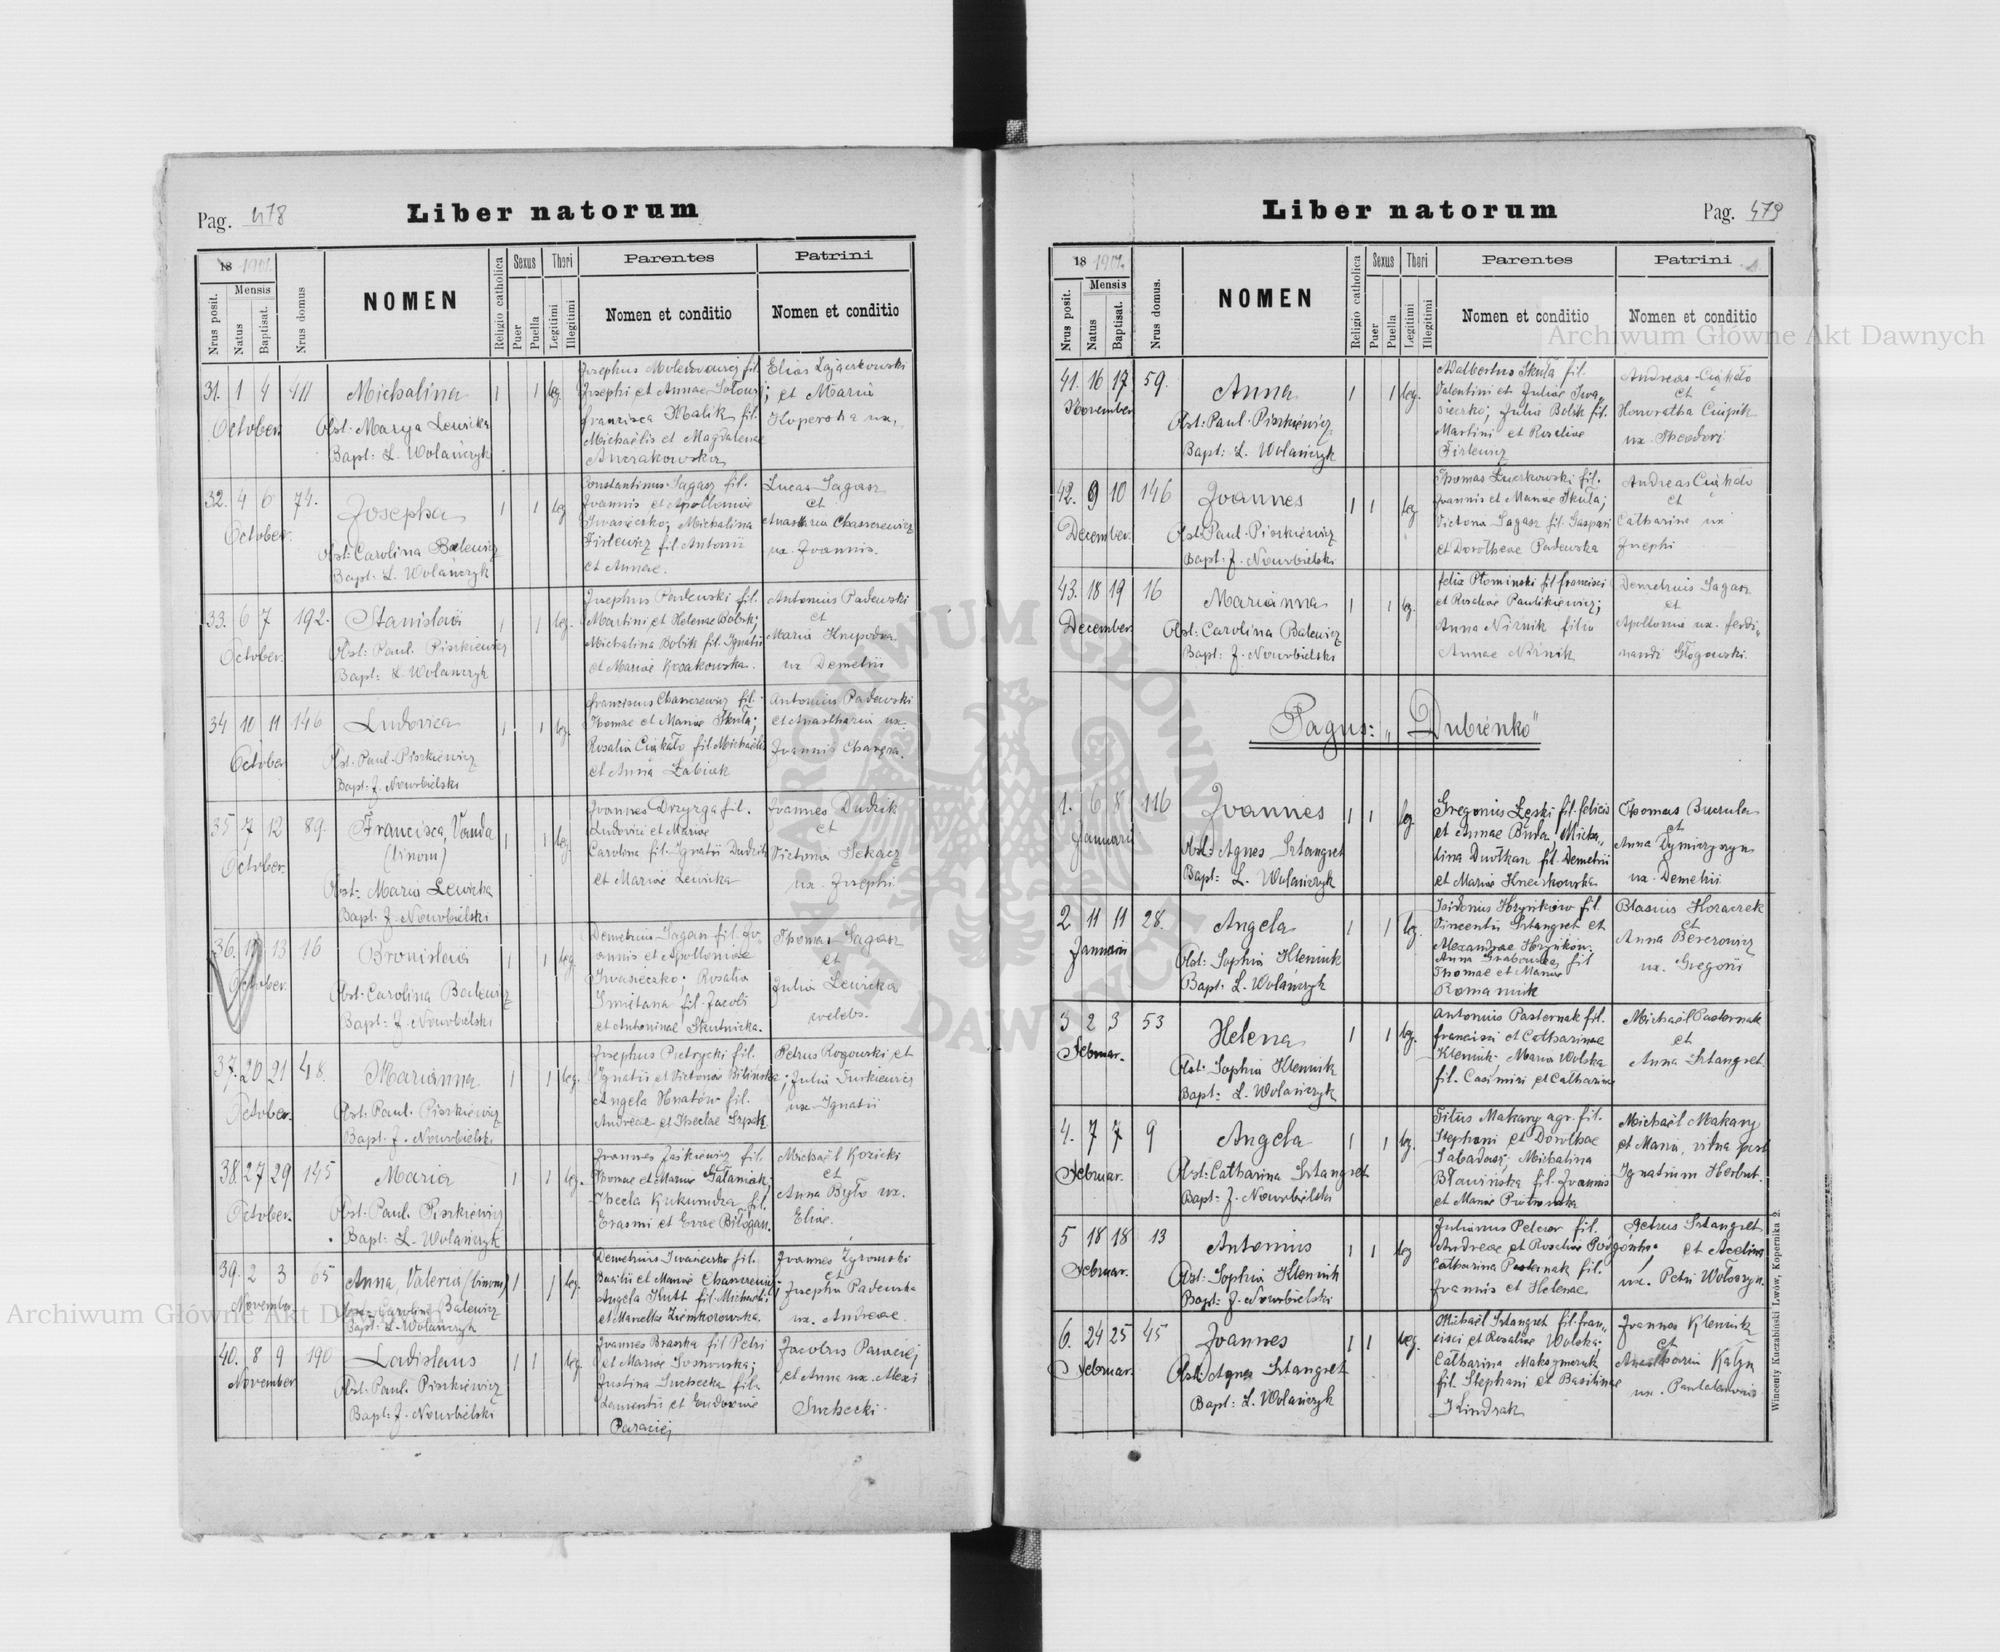 Pag. 478
Liber natorum
18 1901.
Nrus posit.
Mensis
Natus
Baptisat.
Nrus domus
NOMEN
Religio catholica
Sexus
Puer
Puella
Thori
Legitimi
Illegitimi
Parentes
Nomen et conditio
Patrini
Nomen et conditio
31. 1 4 411
October.
Michalina
Obst: Marya Lewicka
Bapt: L. Wolańczyk
1 1 leg.
Josephi et Annae
Francisca Malik fil.
Michaëlis et Magdalenae
Elias
et Maria
32. 4 6 74.
October.
Josepha
Obst: Carolina Balewicz
Bapt: L. Wolańczyk
1 1 leg.
Constantinus Sagasz fil.
Joannis et Apolloniae
Iwasieczko; Michalina
Firlewicz fil. Antonii
et Annae.
Lucas Sagasz
et
ux. Joannis.
33. 6 7 192.
October.
Stanislava
Obst: Paul. Piszkiewicz
Bapt: L. Wolańczyk
1 1 leg.
Josephus Padewski fil.
Martini et Helenae Bobik;
Michalina Bobik fil. Ignatii
et Mariae Kozakowska.
Antonius Padewski
et
Maria
ux. Demetrii
34 10 11 146
October
Ludovica
Obst: Paul. Piszkiewicz
Bapt: J. Nowobielski
1 1 leg.
Thomae et Mariae Skuła;
Rosalia Ciąkało fil. Michaëlis
et Anna Łabiak
Antonius Padewski
Joannis
35 7 12 89.
October.
Francisca, Vanda
(binom)
Obst: Maria Lewicka
Bapt: J. Nowobielski
1 1 leg.
Joannes Drzyzga fil.
Ludovici et Mariae
Carolina fil. Ignatii Dudzik
et Mariae Lewicka
Joannes Dudzik
et
Victoria Sekacz
ux. Josephi
36. 13 16
October.
Bronislava
Obst: Carolina Balewicz
Bapt: J. Nowobielski
1 1 leg.
Demetrius Sagasz fil. Jo-
annis et Apolloniae
Iwasieczko; Rosalia
Smietana fil. Jacobi
et Antoninae Skutnicka.
Thomas Sagasz
et
Julia Lewicka
37. 20 21 48.
October.
Marianna
Obst: Paul. Piszkiewicz
Bapt: J. Nowobielski
1 1 leg.
Josephus Pietrycki fil.
Ignatii et Victoriae Bilińska;
Angela Hnatów fil.
Andreae et Theclae
Petrus Rogowski et
Julia
ux. Ignatii
38. 27 29 145
October.
Maria
Obst: Paul. Piszkiewicz
Bapt: L. Wolańczyk
1 1 leg.
Joannes Jaśkiewicz fil.
Thomae et Mariae
Thecla Kukurudza fil.
Erasmi et Evae
Michaël Kozicki
et
Anna Byto ux.
Eliae.
39. 2 3 65
November.
Anna, Valeria (binom)
Obst: Carolina Balewicz
Bapt: L. Wolańczyk
1 1 leg.
Demetrius Iwasieczko fil.
Basilii et Mariae
Angela Kutt fil. Michaëlis
et Marcella
Joannes Zyromski
et
Josepha Padewska
ux. Andreae.
40. 8 9 190
November
Ladislaus
Obst: Paul. Piszkiewicz
Bapt: J. Nowobielski
1 1 leg.
Joannes Braszka fil Petri
et Mariae Sosnowska;
Justina Suchecka fil.
et Eudoxiae
Paraciej
Jacobus Paraciej
et Anna ux. Alexi
Suchecki.
Liber natorum
Pag. 479
18 1901.
Nrus posit.
Mensis
Natus
Baptisat.
Nrus domus.
NOMEN
Religio catholica
Sexus
Puer
Puella
Thori
Legitimi
Illegitimi
Parentes
Nomen et conditio
Patrini
Nomen et conditio
41. 16 17 59.
November
Anna
Obst: Paul. Piszkiewicz
Bapt: L. Wolańczyk
1 1 leg.
Adalbertus Skuła fil.
Valentini et Juliae Iwa„
sieczko; Julia Bobik fil.
Martini et Rosaliae
Firlewicz
Andreas Ciąkało
et
Honoratha
ux. Theodori
42. 9 10 146
December.
Joannes
Obst: Paul. Piszkiewicz
Bapt: J. Nowobielski
1 1 leg
Joannis et Mariae Skuła;
Victoria Sagasz fil. Gaspari
et Dorotheae Padewska
Andreas Ciąkało
et
Catharina ux
Josephi
43. 18 19 16
December.
Marianna
Obst: Carolina Balewicz
Bapt: J. Nowobielski
1 1 leg.
Felix Płominski fil. Francisci
et Rosaliae Paulikiewicz;
Anna Niznik filia
Annae Niznik
Demetrius Sagasz
et
Apollonia ux. Ferdi„
nandi Głogowski.
Pagus: „Dubienko"
1. 6 8 116
Januarii
Joannes
Obst: Agnes Sztangret
Bapt: L. Wolańczyk
1 1 leg
Gregorius Łęski fil. Felicis
et Annae Buda, Micha„
lina fil. Demetrii
et Mariae
Thomas
et
Anna
ux. Demetrii
2 11 11 28.
Januarii
Angela
Obst: Sophia Kleniuk
Bapt: L. Wolańczyk
1 1 leg.
Isidorius Hryńków fil
Vincentii Sztangret et
Alexandrae Hryńków.
Anna Grabowska, fil
Thomae et Mariae
Romaniuk
Blasius Horaczek
et
Anna
ux. Gregorii
3 2 3 53
Februar.
Helena
Obst: Sophia Kleniuk
Bapt: L. Wolańczyk
1 1 leg.
Antonius Pasternak fil.
Francisci et Catharinae
Kleniuk; Maria Wolska
fil. Casimiri et Catharinae
Michaël Pasternak
et
Anna Sztangret
4. 7 7 9
Februar.
Angela
Obst: Catharina Sztangret
Bapt: J. Nowobielski
1 1 leg.
Titus Makary agr. fil.
Stephani et Dorotheae
Sabadasz; Michalina
Bławińska fil. Joannis
et Mariae Piotrowska
Michaël Makary
et Maria, vidua post
Ignatium Herbut.
5 18 18 13
Februar.
Antonius
Obst: Sophia Kleniuk
Bapt: J. Nowobielski
1 1 leg
Julianus Pelczar fil.
Andreae et Rosaliae Podgórska;
Catharina Pasternak fil.
Joannis et Helenae
Petrus Sztangret
et Acelina
ux. Petri Wołoszyn.
6. 24 25 45
Februar.
Joannes
Obst: Agnes Sztangret
Bapt: L. Wolańczyk
1 1 leg.
Michaël Sztangret fil. Fran„
cisci et Rosaliae Wolska;
Catharina Maksymczuk
fil. Stephani et Basilinae
Kindrak
Joannes Kleniuk
et
Anastharia Kałyn
ux. Pantaleonis
Wincenty Kuczabiński Lwów, Kopernika 2.
Archiwum Główne Akt Dawnych
Archiwum Główne Akt Dawnych
ARCHIWUM GŁÓWNE AKT DAWNYCH